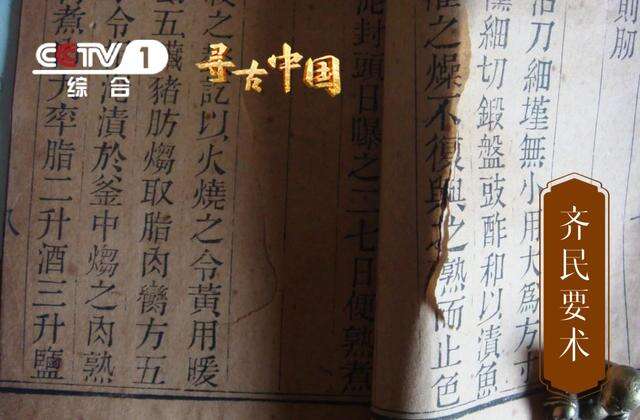 CCTV 1
综合
寻古中国
則肕
刀細墐無小用大為方寸
細切鍛盤豉酢和以漬魚
之燥不復與之熟而止色
泥封頭日曝之二七日便熟煮
之訖以火燒之令黃用暖
五臟豬肪煼取脂肉臠方五
令漬於釜中煼之肉熟
煮率脂二升酒三升鹽
八
齐民要术